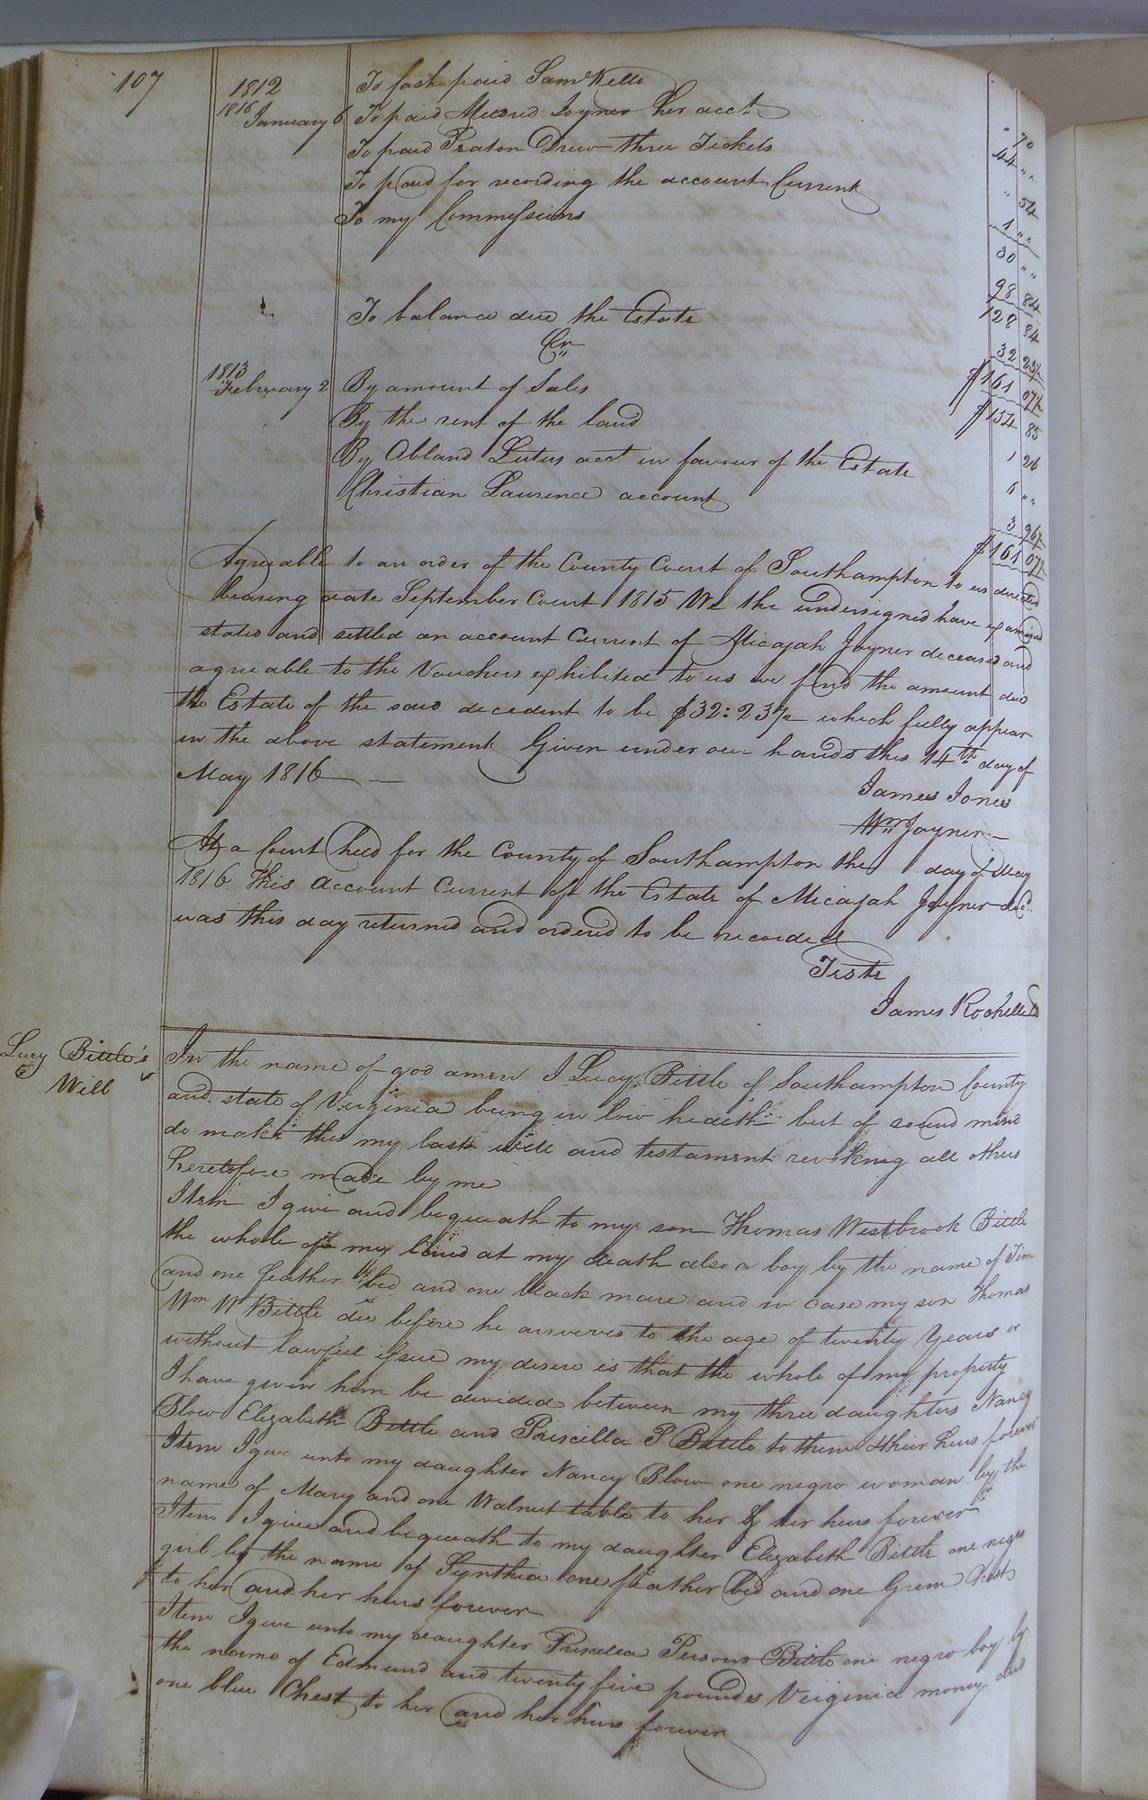 107
1812 To Cash paid Saml Kello " 70
1816 January 6 To paid Mildred Joyner her acct. 44 " "
To paid Peaton Drew three Tickets " 54
To paid for recording the account Current 1 " "
To my Commissions 30 " "
98 84
128 84
To balance due the Estate 32 23½
Cr
$161 07½
1813 February 2 By amount of Sales $154 85
By the rent of the land 1 26
By Abland Lutus acct in favour of the Estate 1 " "
Christian Laurence account 3 96½
$161 07½
Agreeable to an order of the County Court of Southampton to us directed
bearing date September Court 1815 We the undersigned have examined
stated and settled an account Current of Micajah Joyner deceased and
agreeable to the Vouchers exhibited to us we find the amount due
the Estate of the said decedent to be $32:23½ which fully appear
in the above statement Given under our hands this 14th day of
May 1816
James Jones
Wm Joyner
At a Court held for the County of Southampton the day of May
1816 This account Current of the Estate of Micajah Joyner decd.
was this day returned and ordered to be recorded
Teste
James Rochelle
Lucy Bittle's
Will
In the name of god amen I Lucy Bittle of Southampton County
and state of Virginia being in low health but of sound mind
do make this my last will and testament revoking all others
heretofore made by me
Item I give and bequeath to my son Thomas Westbrook Bittle
the whole of my land at my death also a boy by the name of Jim
and one feather bed and one black mare and in case my son Thomas
Wm W Bittle die before he arriveres to the age of twenty Years or
without lawful issue my desire is that the whole of my property
I have given him be divided between my three daughters Nancy
Blow Elizabeth Bittle and Priscilla P Bittle to them & their heirs forever
Item I give unto my daughter Nancy Blow one negro woman by the
name of Mary and one Walnut table to her & her heirs forever
Item I give and bequeath to my daughter Elizabeth Bittle one negro
girl by the name of Synthia one feather bed and one Green Chest
to her and her heirs forever
Item I give unto my daughter Priscilla Persons Bittle one negro boy by
the name of Edmund and twenty five pounds Virginia money and
one blue Chest to her and her heirs forever